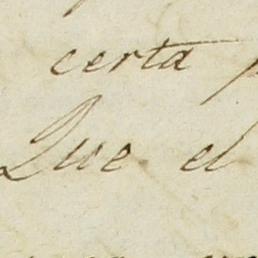 certa
Que el